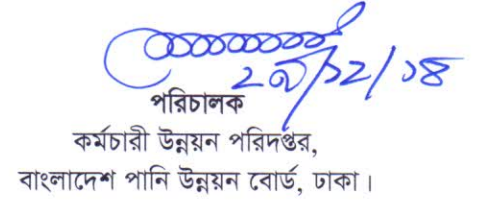 ২৯/১২/১৪
পরিচালক
কর্মচারী উন্নয়ন পরিদপ্তর,
বাংলাদেশ পানি উন্নয়ন বোর্ড, ঢাকা।